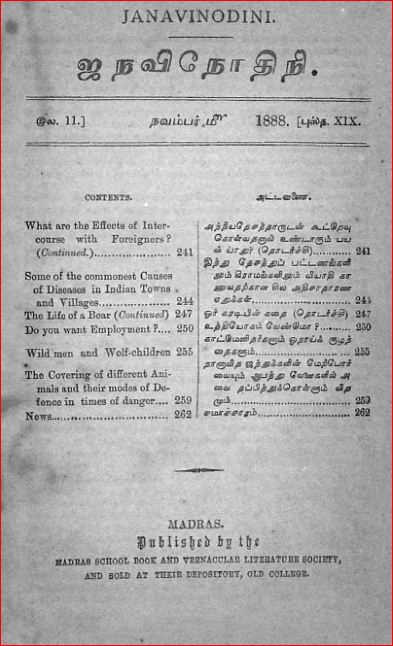 JANAVINODINI.
ஜநவிநோதிநி.
இல. 11.] நவம்பர்மீ 1888. [புஸ்த. XIX.
CONTENTS.
What are the Effects of Inter-
course with Foreigners?
(Continued.)..................... 241
Some of the commonest Causes
of Diseases in Indian Towns
and Villages..................... 244
The Life of a Bear (Continued) 247
Do you want Employment?.... 250
Wild men and Wolf-children 255
The Covering of different Ani-
mals and their modes of De-
fence in times of danger.... 259
News.............................. 262
அட்டவணை.
அந்நியதேசத்தாருடன் கூட்டுறவு
கொள்வதனால் உண்டாகும் பய
ன் யாது? (தொடர்ச்சி)............ 241
இந்து தேசத்துப் பட்டணங்களி
லும் கிராமங்களிலும் வியாதி கா
ணுவதற்கான சில அதிசாதாரண
ஏதுக்கள்........................... 244
ஓர் கரடியின் கதை (தொடர்ச்சி) 247
உத்தியோகம் வேண்டுமோ?......... 250
காட்டுமனிதர்களும் ஓநாய்க் குழந்
தைகளும்........................... 255
நானாவித ஜந்துக்களின் மேற்போர்
வையும் ஆபத்து வேளைகளில் அ
வை தப்பித்துக்கொள்ளும் வித
மும்................................. 259
சமாச்சாரம்........................ 262
MADRAS.
Published by the
MADRAS SCHOOL BOOK AND VERNACULAR LITERATURE SOCIETY,
AND SOLD AT THEIR DEPOSITORY, OLD COLLEGE.